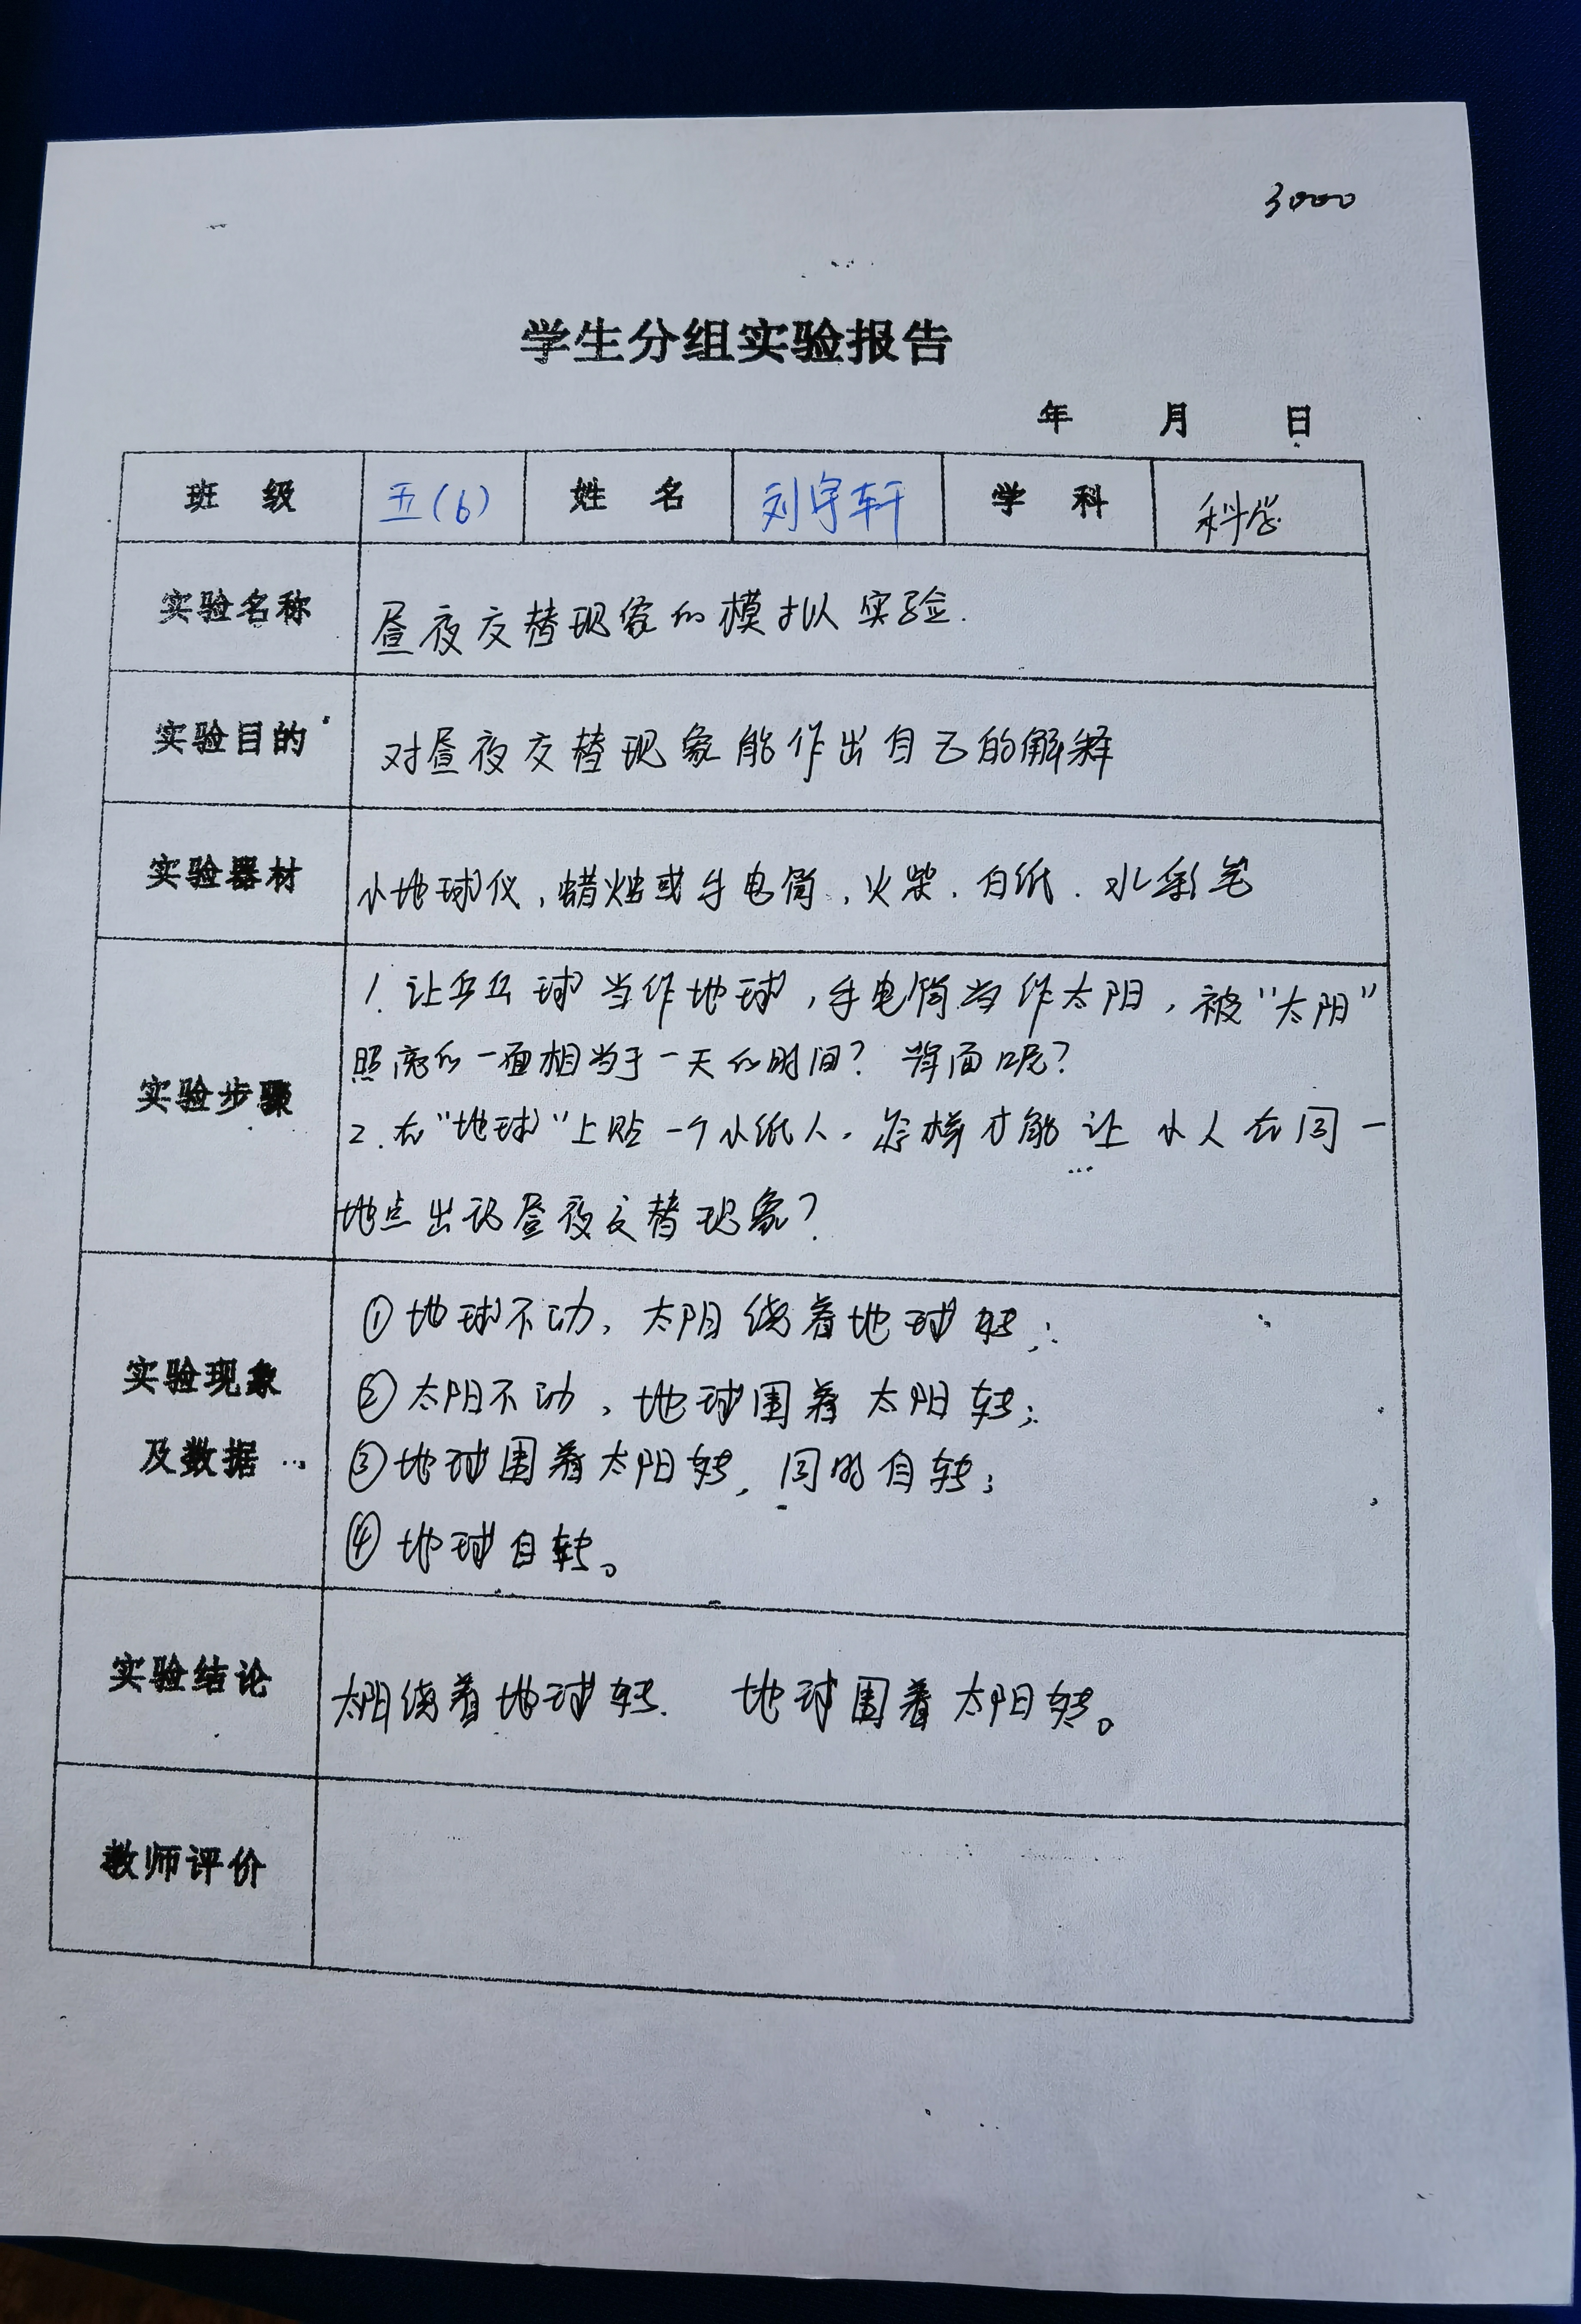 3000
学生分组实验报告
年 月 日
班 级 五(6) 姓 名 刘宇轩 学 科 科学
实验名称 昼夜交替现象的模拟实验.
实验目的 对昼夜交替现象能作出自己的解释
实验器材 小地球仪,蜡烛或手电筒,火柴.白纸.水彩笔
实验步骤
1.让乒乓球当作地球,手电筒当作太阳,被“太阳”
照亮的一面相当于一天的时间?背面呢?
2.在“地球”上贴一个小纸人.怎样才能让小人在同一
地点出现昼夜交替现象?
实验现象
及数据
①地球不动,太阳绕着地球转;
②太阳不动,地球围着太阳转;
③地球围着太阳转,同时自转;
④地球自转。
实验结论 太阳绕着地球转. 地球围着太阳转。
教师评价